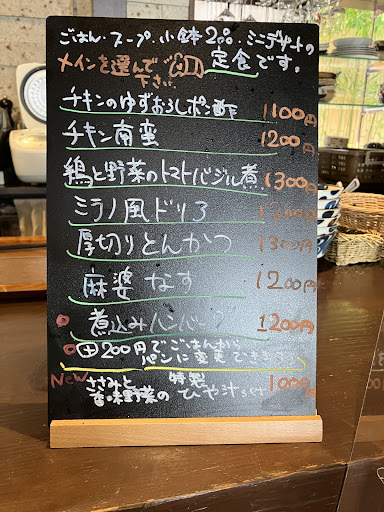 ごはん・スープ・小鉢2つ・ミニデザートの
メインを選んで下さい 定食です。
チキンのゆずおろしポン酢 1100円
チキン南蛮 1200円
鶏と野菜のトマトバジル煮 1300円
ミラノ風ドリア 1200円
厚切りとんかつ 1300円
麻婆なす 1200円
煮込みハンバーグ 1200円
+200円でごはんから
パンに変更できます
New ささみと香味野菜の特製ひや汁set 1000円